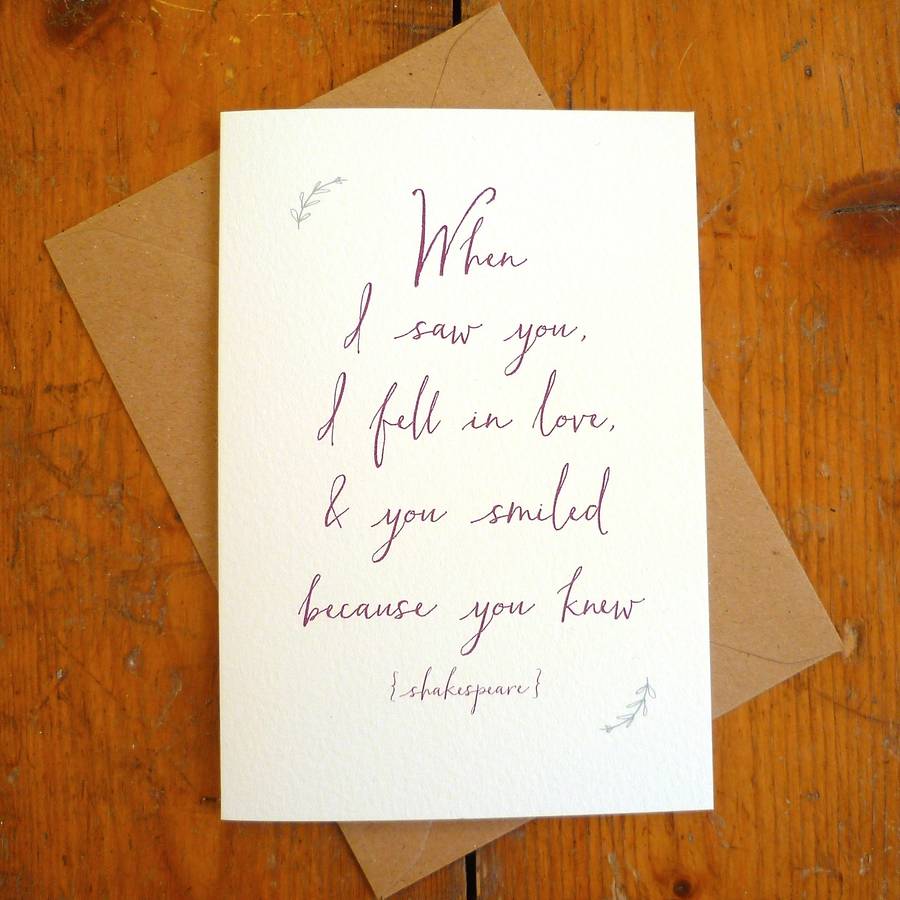 When
I saw you,
I fell in love,
& you smiled
because you knew
{shakespeare}